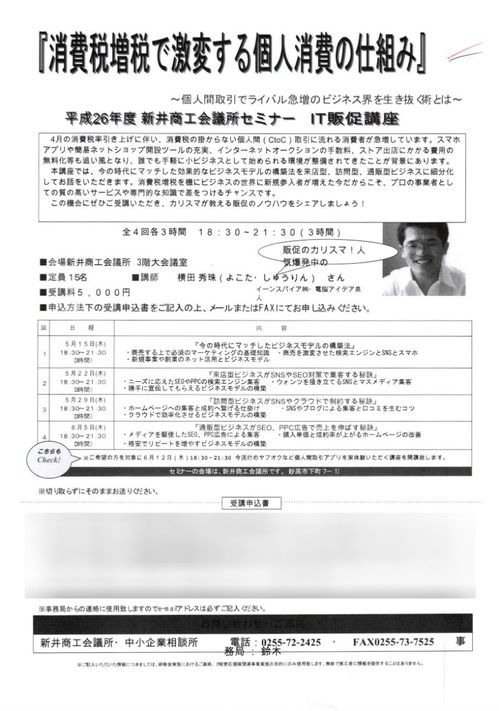 『消費税増税で激変する個人消費の仕組み』
～個人間取引でライバル急増のビジネス界を生き抜く術とは～
平成26年度 新井商工会議所セミナー IT販促講座
4月の消費税率引き上げに伴い、消費税の掛からない個人間（CtoC）取引に流れる消費者が急増しています。スマホ
アプリや簡易ネットショップ開設ツールの充実、インターネットオークションの手数料、ストア出店にかかる費用の
無料化等も追い風となり、誰でも手軽に小ビジネスとして始められる環境が整備されてきたことが背景にあります。
本講座では、今の時代にマッチした効果的なビジネスモデルの構築法を来店型、訪問型、通販型ビジネスに細分化
してお話をいただきます。消費税増税を機にビジネスの世界に新規参入者が増えた今だからこそ、プロの事業者とし
ての質の高いサービスや専門的な知識で差をつけるチャンスです。
この機会にぜひご受講いただき、カリスマが教える販促のノウハウをシェアしましょう！
全4回各3時間 18：30～21：30（3時間）
販促のカリスマ！人
気爆発中の
■会場新井商工会議所 3階大会議室
■定員15名 ■講師 横田 秀珠（よこた・しゅうりん） さん
■受講料5,000円
イーンスパイア㈱・電脳アイデア泉
人
■申込方法下の受講申込書をご記入の上、メールまたはFAXにてお申し込みください。
回 日 程 内 容
1 5月15日(木) 18:30～21:30 (3時間)
『今の時代にマッチしたビジネスモデルの構築法』
・商売する上で必須のマーケティングの基礎知識 ・商売を激変させた検索エンジンとSNSとスマホ
・新規事業や創業のネット活用とビジネスモデル
2 5月22日(木) 18:30～21:30 (3時間)
『来店型ビジネスがSNSやSEO対策で集客する秘訣』
・ニーズに応えたSEOやPPCの検索エンジン集客 ・ウォンツを掻き立てるSNSとマスメディア集客
・勝手に宣伝してもらえるビジネスモデルの構築
3 5月29日(木) 18:30～21:30 (3時間)
『訪問型ビジネスがSNSやクラウドで制約する秘訣』
・ホームページへの集客と成約へ繋げる仕掛け ・SNSやブログによる集客と口コミを生むコツ
・クラウドで効率化させるビジネスモデルの構築
4 6月5日(木) 18:30～21:30 (3時間)
『通販型ビジネスがSEO、PPC広告で売上を伸ばす秘訣』
・メディアを駆使したSEO、PPC広告による集客 ・購入単価と成約率が上がるホームページの改善
・格安でリピートを増やすビジネスモデルの構築
こちらも
Check!
※ご希望の方を対象に6月12日(木)18:30～21:30 今流行のヤフオクなど個人間取引アプリを実体験いただく講座を開講致します。
セミナーの会場は、新井商工会議所です。妙高市下町7－1）
※切り取らずにそのままお送りください。
受講申込書
※事務局からの連絡に使用致しますのでe-mailアドレスは必ずご記入ください。
お問い合わせ・ご案内
新井商工会議所・中小企業相談所 電話：0255-72-2425 ・ FAX0255-73-7525 事
務局：鈴木